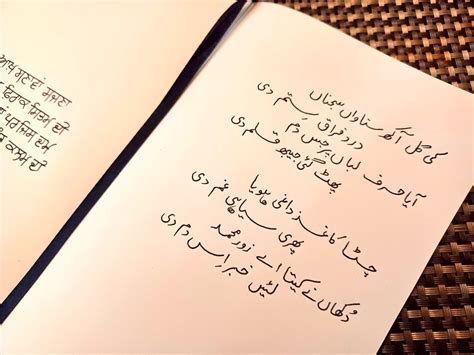 ਆਖ ਸੁਣਾਵਾਂ ਸੱਜਣਾ
ਫ਼ਿਰਾਕ ਸਿਤਮ ਦੀ
ਪਰ ਜਿਸ ਦਮ
ਕਲਮ ਦੀ
کی گل آکھ سناواں سجناں
درد فراق ستم دی
آیا حرف لباں پر جس دم
پھٹ گئی جیبھ قلم دی
چٹا کاغذ داغی ہویا
پھری سیاہی غم دی
دُکھاں نے کیتا اے زور محمد
لئیں خبر اِس دم دی